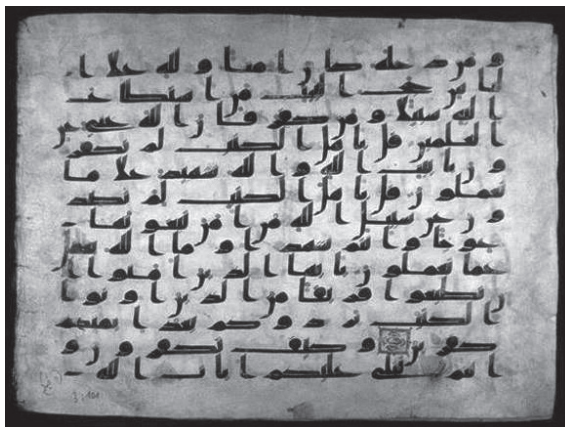 ومن دخله كان امنا ولله على ا
لناس حج البيت من استطاع
اليه سبيلا ومن كفر فان الله غنى عن
العلمين قل ياهل الكتب لم تكفر
ون بايت الله والله شهيد على ما
تعملون قل ياهل الكتب لم تصد
ون عن سبيل الله من امن تبغونها
عوجا وانتم شهدا وما الله بغفل
عما تعملون يايها الذين امنوا ا
ن تطيعوا فريقا من الذين اوتوا
الكتب يردوكم بعد ايمنكم
كفرين وكيف تكفرون و
انتم تتلى عليكم ايت الله
3:101